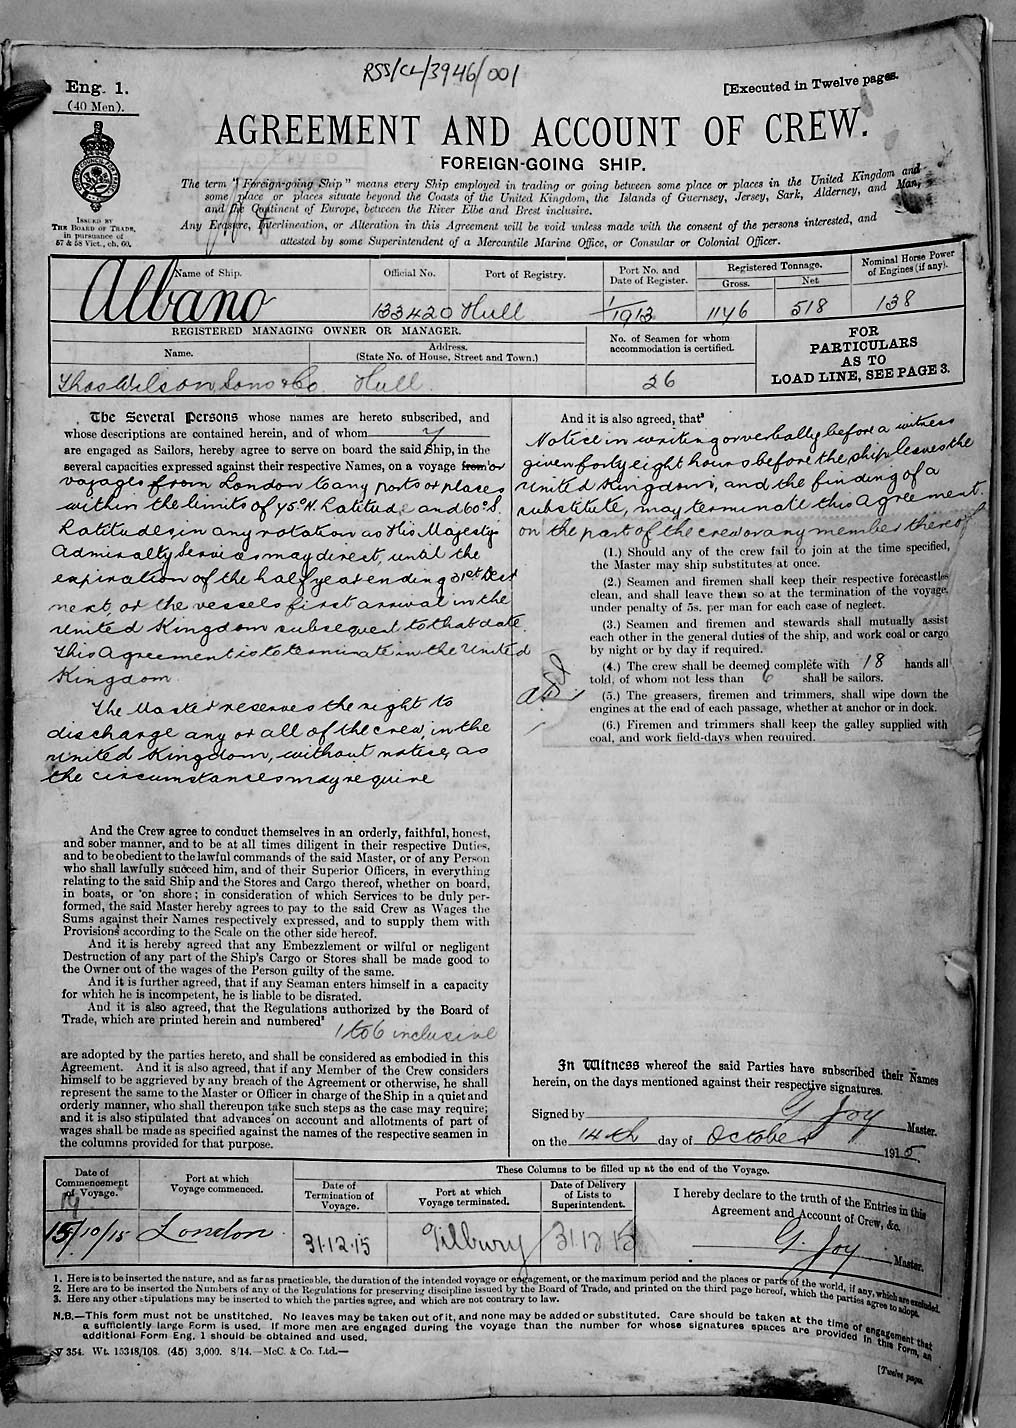 RSS/CL/3946/001
Eng. 1.
(40 Men).
[Executed in Twelve pages.
AGREEMENT AND ACCOUNT OF CREW.
FOREIGN-GOING SHIP.
ISSUED BY
THE BOARD OF TRADE,
in pursuance of
57 & 58 Vict., ch. 60.
The term "Foreign-going Ship" means every Ship employed in trading or going between some place or places in the United Kingdom and
some place or places situate beyond the Coasts of the United Kingdom, the Islands of Guernsey, Jersey, Sark, Alderney, and Man,
and the Continent of Europe, between the River Elbe and Brest inclusive.
Any Erasure, Interlineation, or Alteration in this Agreement will be void unless made with the consent of the persons interested, and
attested by some Superintendent of a Mercantile Marine Office, or Consular or Colonial Officer.
Name of Ship. Official No. Port of Registry. Port No. and Date of Register. Registered Tonnage. Gross. Net Nominal Horse Power of Engines (if any).
Albano 133420 Hull 1/1913 1146 518 138
REGISTERED MANAGING OWNER OR MANAGER.
Name. Address. (State No. of House, Street and Town.) No. of Seamen for whom accommodation is certified.
Thos Wilson Sons & Co. Hull. 26
FOR
PARTICULARS
AS TO
LOAD LINE, SEE PAGE 3.
The Several Persons whose names are hereto subscribed, and
whose descriptions are contained herein, and of whom 7
are engaged as Sailors, hereby agree to serve on board the said Ship, in the
several capacities expressed against their respective Names, on a voyage from or
voyages from London to any ports or places
within the limits of 75° N. Latitude and 60° S.
Latitudes in any rotation as His Majesty's
Admiralty Services may direct, until the
expiration of the half year ending 31st Decr
next, or the vessels first arrival in the
United Kingdom subsequent to that date.
This Agreement is to terminate in the United
Kingdom
The Master reserves the right to
discharge any or all of the crew, in the
United Kingdom, without notice, as
the circumstances may require
And the Crew agree to conduct themselves in an orderly, faithful, honest,
and sober manner, and to be at all times diligent in their respective Duties,
and to be obedient to the lawful commands of the said Master, or of any Person
who shall lawfully succeed him, and of their Superior Officers, in everything
relating to the said Ship and the Stores and Cargo thereof, whether on board,
in boats, or on shore; in consideration of which Services to be duly per-
formed, the said Master hereby agrees to pay to the said Crew as Wages the
Sums against their Names respectively expressed, and to supply them with
Provisions according to the Scale on the other side hereof.
And it is hereby agreed that any Embezzlement or wilful or negligent
Destruction of any part of the Ship's Cargo or Stores shall be made good to
the Owner out of the wages of the Person guilty of the same.
And it is further agreed, that if any Seaman enters himself in a capacity
for which he is incompetent, he is liable to be disrated.
And it is also agreed, that the Regulations authorized by the Board of
Trade, which are printed herein and numbered²
1 to 6 inclusive
are adopted by the parties hereto, and shall be considered as embodied in this
Agreement. And it is also agreed, that if any Member of the Crew considers
himself to be aggrieved by any breach of the Agreement or otherwise, he shall
represent the same to the Master or Officer in charge of the Ship in a quiet and
orderly manner, who shall thereupon take such steps as the case may require;
and it is also stipulated that advances on account and allotments of part of
wages shall be made as specified against the names of the respective seamen in
the columns provided for that purpose.
And it is also agreed, that³
Notice in writing or verbally before a witness
given forty eight hours before the ship leaves the
United Kingdom, and the finding of a
substitute, may terminate this Agreement.
on the part of the crew or any member thereof
(1.) Should any of the crew fail to join at the time specified,
the Master may ship substitutes at once.
(2.) Seamen and firemen shall keep their respective forecastles
clean, and shall leave them so at the termination of the voyage,
under penalty of 5s. per man for each case of neglect.
(3.) Seamen and firemen and stewards shall mutually assist
each other in the general duties of the ship, and work coal or cargo
by night or by day if required.
(4.) The crew shall be deemed complete with 18 hands all
told, of whom not less than 6 shall be sailors.
(5.) The greasers, firemen and trimmers, shall wipe down the
engines at the end of each passage, whether at anchor or in dock.
(6.) Firemen and trimmers shall keep the galley supplied with
coal, and work field-days when required.
In Witness whereof the said Parties have subscribed their Names
herein, on the days mentioned against their respective signatures.
Signed by G. Joy Master.
on the 14th day of October 1915.
These Columns to be filled up at the end of the Voyage.
Date of Commencement of Voyage. Port at which Voyage commenced. Date of Termination of Voyage. Port at which Voyage terminated. Date of Delivery of Lists to Superintendent.
15/10/15 London 31.12.15 Tilbury 31.12.15
I hereby declare to the truth of the Entries in this
Agreement and Account of Crew, &c.
G. Joy Master.
1. Here is to be inserted the nature, and as far as practicable, the duration of the intended voyage or engagement, or the maximum period and the places or parts of the world, if any, which are excluded.
2. Here are to be inserted the Numbers of any of the Regulations for preserving discipline issued by the Board of Trade, and printed on the third page hereof, which the parties agree to adopt.
3. Here any other stipulations may be inserted to which the parties agree, and which are not contrary to law.
N.B.—This form must not be unstitched. No leaves may be taken out of it, and none may be added or substituted. Care should be taken at the time of engagement that
a sufficiently large Form is used. If more men are engaged during the voyage than the number for whose signatures spaces are provided in this Form, an
additional Form Eng. 1 should be obtained and used.
V 354. Wt. 15348/108. (45) 3,000. 8/14.—McC. & Co. Ltd.—
[Twelve pages.